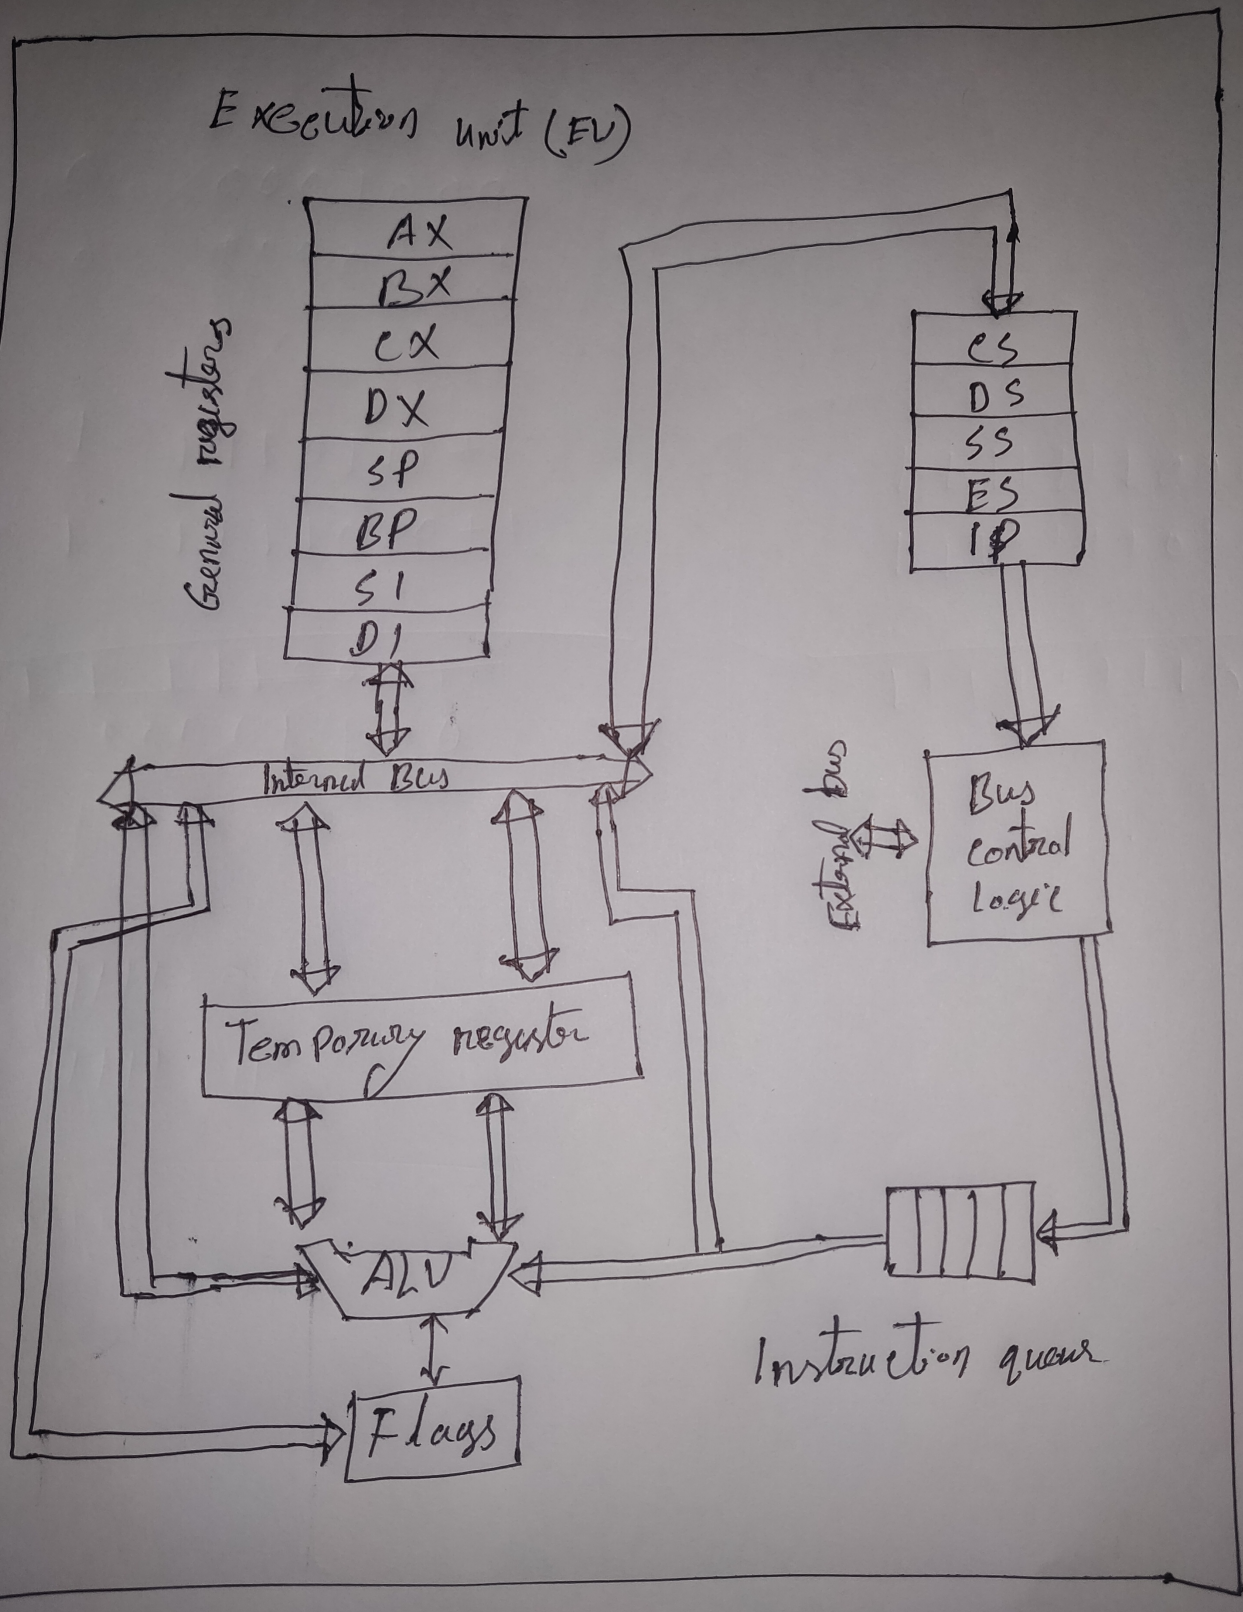 Execution unit (EU)
General registers
AX
BX
CX
DX
SP
BP
SI
DI
CS
DS
SS
ES
IP
Internal Bus
External bus
Bus
control
Logic
Temporary register
ALU
Flags
Instruction queue